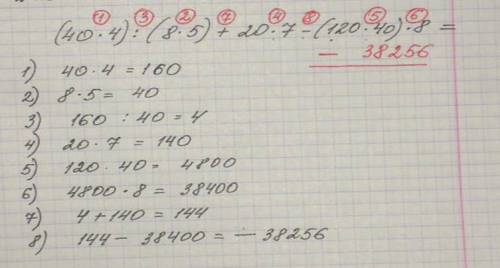 ① ③ ② ⑦ ④ ⑧ ⑤ ⑥
(40·4):(8·5)+20·7-(120·40)·8=
- 38256
1) 40·4=160
2) 8·5= 40
3) 160 : 40=4
4) 20·7 = 140
5) 120·40= 4800
6) 4800·8= 38400
7) 4+140=144
8) 144- 38400=-38256